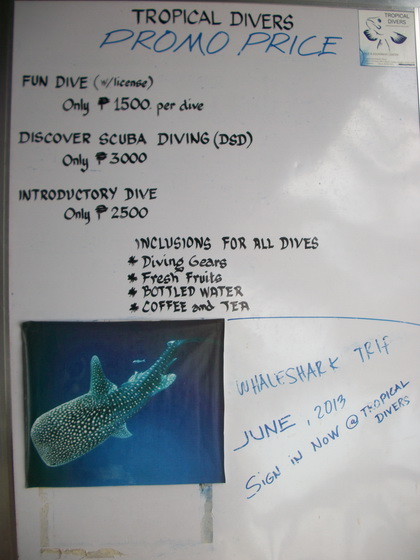 TROPICAL DIVERS
PROMO PRICE
TROPICAL
DIVERS
FUN DIVE (w/license)
Only ₱ 1500. per dive
DISCOVER SCUBA DIVING (DSD)
Only ₱ 3000
INTRODUCTORY DIVE
Only ₱ 2500
INCLUSIONS FOR ALL DIVES
* Diving Gears
* Fresh Fruits
* BOTTLED WATER
* COFFEE and TEA
WHALESHARK TRIP
JUNE, 2013
SIGN IN NOW @ TROPICAL
DIVERS